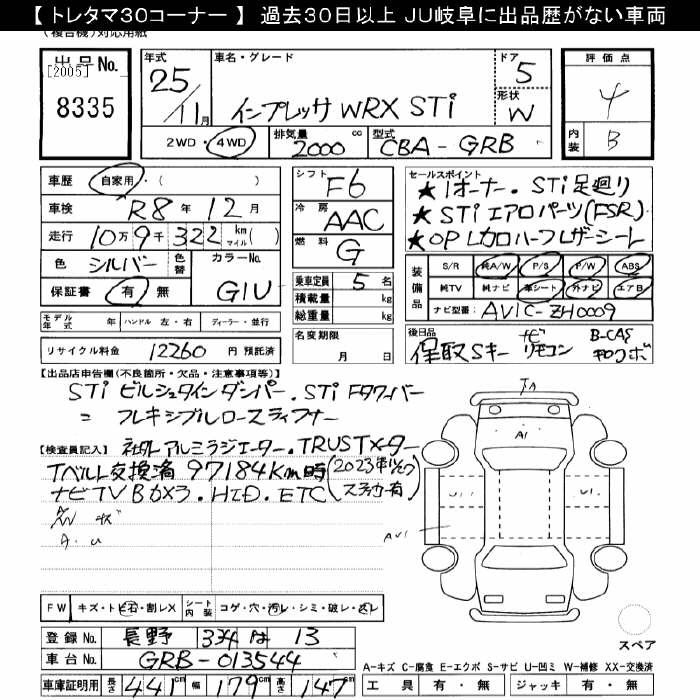 【 トレタマ30コーナー 】 過去30日以上 JU岐阜に出品歴がない車両
(複合機)対応用紙
出品No.
[2005]
8335
年式 25/11月
車名・グレード インプレッサ WRX STi
ドア 5
形状 W
2WD・4WD
排気量 2000 cc
型式 CBA-GRB
評価点 4
内装 B
車歴 自家用・( )
車検 R8年 12月
走行 10万9千322 km マイル( )
色 シルバー 色替 カラーNo. G1U
保証書 有・無
モデル年式 年 ハンドル 左・右 ディーラー・並行
リサイクル料金 12260 円 預託済
シフト F6
冷房 AAC
燃料 G
乗車定員 5名
積載量 kg
総重量 kg
名変期限 月 日
セールスポイント
★1オーナー.STi足廻り
★STiエアロパーツ(FSR)
★OPレカロハーフレザーシート
装備品
S/R 純A/W P/S P/W ABS
純TV 純ナビ 革シート 外ナビ エアB
ナビ型番: AVIC-ZH0009
後日品 保取Sキー ナビリモコン B-CAS
【出品店申告欄(不良箇所・欠品・注意事項等)】
STi ビルシュタインダンパー.STi Fタワーバー
= フレキシブルロースティフナー
【検査員記入】 社外アルミラジエーター.TRUSTメーター
Tベルト交換済 97184Km時(2023年
ナビTV Bカメラ.HID.ETC ステッカー有)
A.U
A1
U1
U1
AU1
FW キズ・トビ石・割レX
シート内装 コゲ・穴・汚レ・シミ・破レ・スレ
登録No. 長野 334 は 13
車台No. GRB-013544
車庫証明用 長さ 441cm 幅 179cm 高さ 147cm
スペア
A-キズ C-腐食 E-エクボ S-サビ U-凹ミ W-補修 XX-交換済
工具 有・無 ジャッキ 有・無